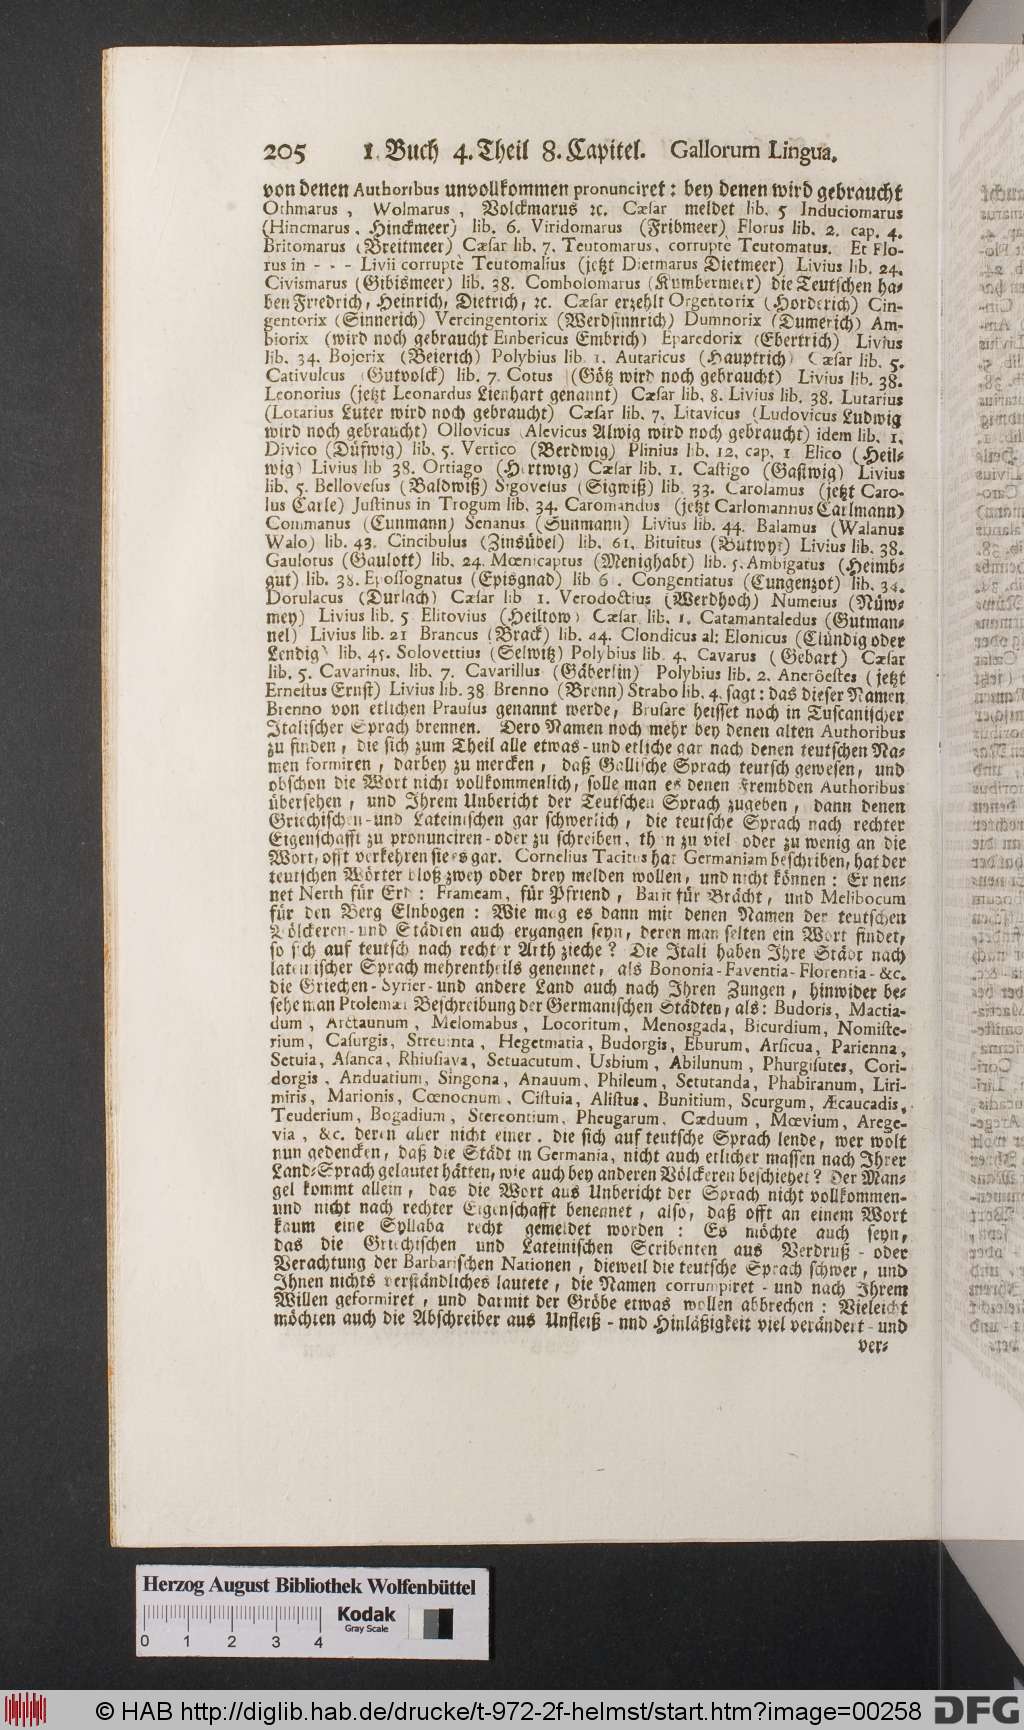 205 1. Buch 4. Theil 8. Capitel. Gallorum Lingua.
von denen Authoribus unvollkommen pronunciret: bey denen wird gebraucht
Othmarus, Wolmarus, Volckmarus ꝛc. Cæsar meldet lib. 5 Induciomarus
(Hincmarus, Hinckmeer) lib. 6. Viridomarus (Fribmeer) Florus lib. 2. cap. 4.
Britomarus (Breitmeer) Cæsar lib. 7. Teutomarus, corruptè Teutomatus. Et Flo-
rus in - - - Livii corruptè Teutomalius (jetzt Dietmarus Dietmeer) Livius lib. 24.
Civismarus (Gibismeer) lib. 38. Combolomarus (Kumbermeer) die Teutschen ha-
ben Friedrich, Heinrich, Dietrich, ꝛc. Cæsar erzehlt Orgentorix (Horderich) Cin-
gentorix (Sinnerich) Vercingentorix (Werdsinnrich) Dumnorix (Dumerich) Am-
biorix (wird noch gebraucht Einbericus Embrich) Eparedorix (Ebertrich) Livius
lib. 34. Bojorix (Beierich) Polybius lib. 1. Autaricus (Hauptrich) Cæsar lib. 5.
Cativulcus (Gutvolck) lib. 7. Cotus (Götz wird noch gebraucht) Livius lib. 38.
Leonorius (jetzt Leonardus Lienhart genannt) Cæsar lib. 8. Livius lib. 38. Lutarius
(Lotarius Luter wird noch gebraucht) Cæsar lib. 7. Litavicus (Ludovicus Ludwig
wird noch gebraucht) Ollovicus (Alevicus Alwig wird noch gebraucht) idem lib. 1.
Divico (Düfwig) lib. 5. Vertico (Berdwig) Plinius lib. 12. cap. 1 Elico (Heil-
wig) Livius lib 38. Ortiago (Hertwig) Cæsar lib. 1. Castigo (Gastwig) Livius
lib. 5. Bellovesus (Baldwiß) Sigovesus (Sigwiß) lib. 33. Carolamus (jetzt Caro-
lus Carle) Justinus in Trogum lib. 34. Caromandus (jetzt Carlomannus Carlmann)
Commanus (Cunmann) Senanus (Sunmann) Livius lib. 44. Balamus (Walanus
Walo) lib. 43. Cincibulus (Zinsübel) lib. 61. Bituitus (Butwyt) Livius lib. 38.
Gaulotus (Gaulott) lib. 24. Mœnicaptus (Menighabt) lib. 5. Ambigatus (Heimb-
gut) lib. 38. Epossognatus (Episgnad) lib 6. Congentiatus (Cungenzot) lib. 34.
Dorulacus (Durlach) Cæsar lib 1. Verodoctius (Werdhoch) Numeius (Nüw-
mey) Livius lib. 5 Elitovius (Heiltow) Cæsar lib. 1. Catamantaledus (Gutman-
nel) Livius lib. 21 Brancus (Brack) lib. 44. Clondicus al: Elonicus (Clündig oder
Lendig) lib. 45. Solovettius (Selwitz) Polybius lib. 4. Cavarus (Gebart) Cæsar
lib. 5. Cavarinus, lib. 7. Cavarillus (Gäberlin) Polybius lib. 2. Aneröestes (jetzt
Ernestus Ernst) Livius lib. 38 Brenno (Brenn) Strabo lib. 4. sagt: das dieser Namen
Brenno von etlichen Prausus genannt werde, Brusare heisset noch in Tuscanischer
Italischer Sprach brennen. Dero Namen noch mehr bey denen alten Authoribus
zu finden, die sich zum Theil alle etwas- und etliche gar nach denen teutschen Na-
men formiren, darbey zu mercken, daß Gallische Sprach teutsch gewesen, und
obschon die Wort nicht vollkommenlich, solle man es denen Frembden Authoribus
übersehen, und Ihrem Unbericht der Teutschen Sprach zugeben, dann denen
Griechischen- und Lateinischen gar schwerlich, die teutsche Sprach nach rechter
Eigenschafft zu pronunciren- oder zu schreiben, thun zu viel oder zu wenig an die
Wort, offt verkehren sie es gar. Cornelius Tacitus hat Germaniam beschriben, hat der
teutschen Wörter bloß zwey oder drey melden wollen, und nicht können: Er nen-
net Nerth für Erd: Frameam, für Pfriend, Barit für Brächt, und Melibocum
für den Berg Elnbogen: Wie mag es dann mit denen Namen der teutschen
Völckeren- und Städten auch ergangen seyn, deren man selten ein Wort findet,
so sich auf teutsch nach rechter Arth zieche? Die Itali haben Ihre Städt nach
lateinischer Sprach mehrentheils genennet, als Bononia- Faventia- Florentia- &c.
die Griechen- Syrier- und andere Land auch nach Ihren Zungen, hinwider be-
sehe man Ptolemæi Beschreibung der Germanischen Städten, als: Budoris, Mactia-
dum, Arctaunum, Melomabus, Locoritum, Menosgada, Bicurdium, Nomiste-
rium, Casurgis, Strevinta, Hegetmatia, Budorgis, Eburum, Arsicua, Parienna,
Setuia, Asanca, Rhiusiava, Setuacutum, Usbium, Abilunum, Phurgisutes, Cori-
dorgis, Anduatium, Singona, Anauum, Phileum, Setutanda, Phabiranum, Liri-
miris, Marionis, Cœnocnum, Cistuia, Alistus, Bunitium, Scurgum, Æcaucadis,
Teuderium, Bogadium, Stereontium, Pheugarum, Cæduum, Mœvium, Arege-
via, &c. deren aber nicht einer, die sich auf teutsche Sprach lende, wer wolt
nun gedencken, daß die Städt in Germania, nicht auch etlicher massen nach Ihrer
Land-Sprach gelautet hätten, wie auch bey anderen Völckeren beschiehet? Der Man-
gel kommt allein, das die Wort aus Unbericht der Sprach nicht vollkommen-
und nicht nach rechter Eigenschafft benennet, also, daß offt an einem Wort
kaum eine Syllaba recht gemeldet worden: Es möchte auch seyn,
das die Griechischen und Lateinischen Scribenten aus Verdruß - oder
Verachtung der Barbarischen Nationen, dieweil die teutsche Sprach schwer, und
Ihnen nichts verständliches lautete, die Namen corrumpiret - und nach Ihrem
Willen geformiret, und darmit der Gröbe etwas wollen abbrechen: Vieleicht
möchten auch die Abschreiber aus Unfleiß - und Hinläßigkeit viel verändert - und
ver-
Herzog August Bibliothek Wolfenbüttel
Kodak
Gray Scale
0 1 2 3 4
© HAB http://diglib.hab.de/drucke/t-972-2f-helmst/start.htm?image=00258 DFG